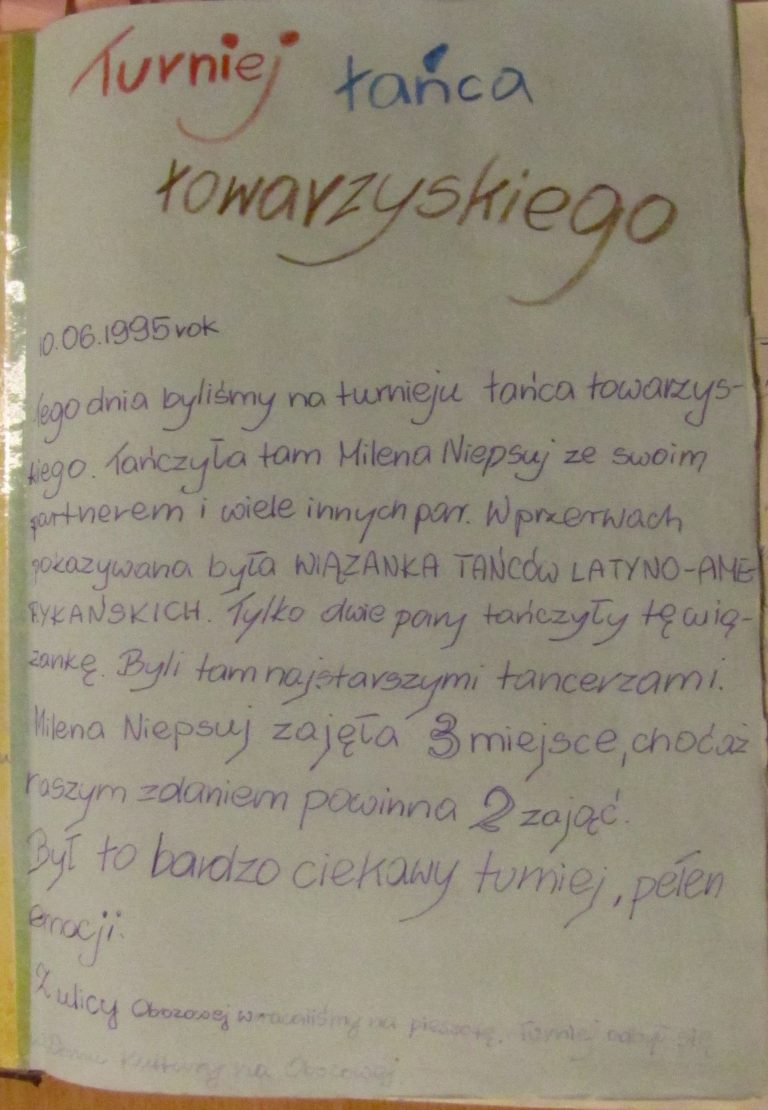 Turniej tańca
towarzyskiego
10.06.1995 rok
Tego dnia byliśmy na turnieju tańca towarzys-
kiego. Tańczyła tam Milena Niepsuj ze swoim
partnerem i wiele innych par. W przerwach
pokazywana była WIĄZANKA TAŃCÓW LATYNO-AME-
RYKAŃSKICH. Tylko dwie pary tańczyły tę wią-
zankę. Byli tam najstarszymi tancerzami.
Milena Niepsuj zajęła 3 miejsce, chociaż
naszym zdaniem powinna 2 zająć.
Był to bardzo ciekawy turniej, pełen
emocji.
Z ulicy Obozowej wracaliśmy na piechotę. Turniej odbył się
w Domu Kultury na Obozowej